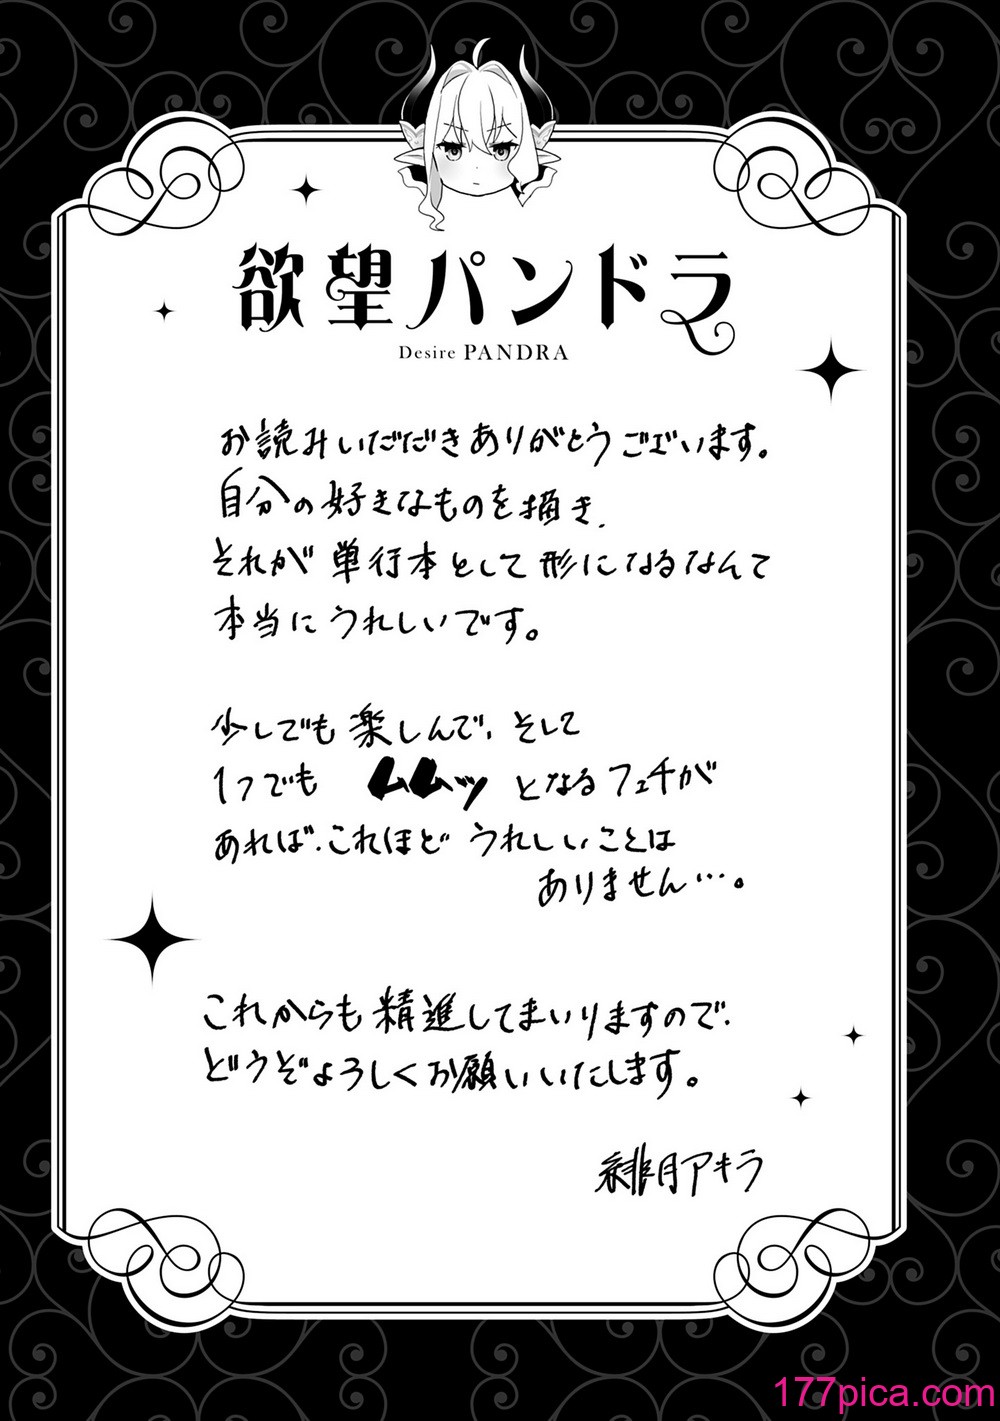 欲望パンドラ
Desire PANDRA
お読みいただきありがとうございます。
自分の好きなものを描き、
それが単行本として形になるなんて
本当にうれしいです。
少しでも楽しんで、そして
1つでも ムムムッ となるフェチが
あれば、これほど うれしいことは
ありません…。
これからも精進してまいりますので、
どうぞよろしくお願いいたします。
緋月アキラ
177pica.com